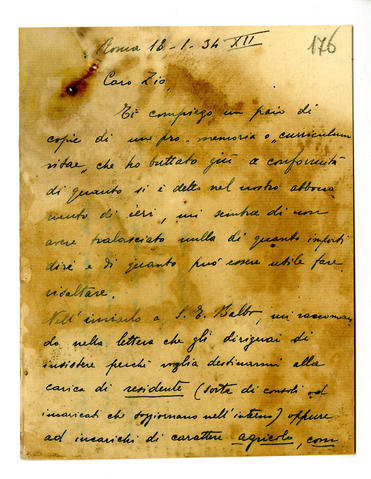 Roma 18-1-34 XII
176
Caro Zio,
Ti compiego un paio di
copie di un pro-memoria o "curriculum
vitae, che ho buttato giù a conformità
di quanto si è detto nel nostro abboca
mento di ieri, mi sembra di non
avere tralasciato nulla di quanto importi
dire e di quanto può essere utile fare
risaltare.
Nell'inviarlo a S. E. Balbo, mi raccoman
do nella lettera che gli dirigerai di
insistere perchè voglia destinarmi alla
carica di residente (sorta di consoli od
incaricati che soggiornano nell'interno) oppure
ad incarichi di carattere agricolo, com